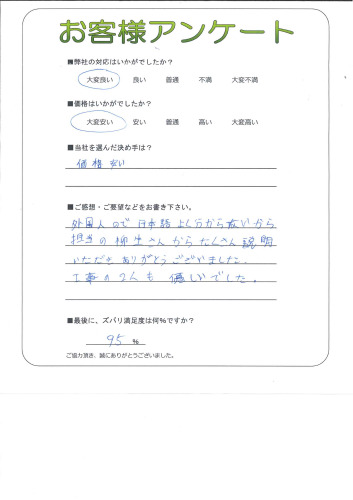 お客様アンケート
■弊社の対応はいかがでしたか？
大変良い 良い 普通 不満 大変不満
■価格はいかがでしたか？
大変安い 安い 普通 高い 大変高い
■当社を選んだ決め手は？
価格安い
■ご感想・ご要望などをお書き下さい。
外国人ので日本語よく分から ないから
担当の柳生さんからたくさん説明
いただき ありがとうございました。
工事の2人も 優しいでした。
■最後に、ズバリ満足度は何%ですか？
95 %
ご協力頂き、誠にありがとうございました。